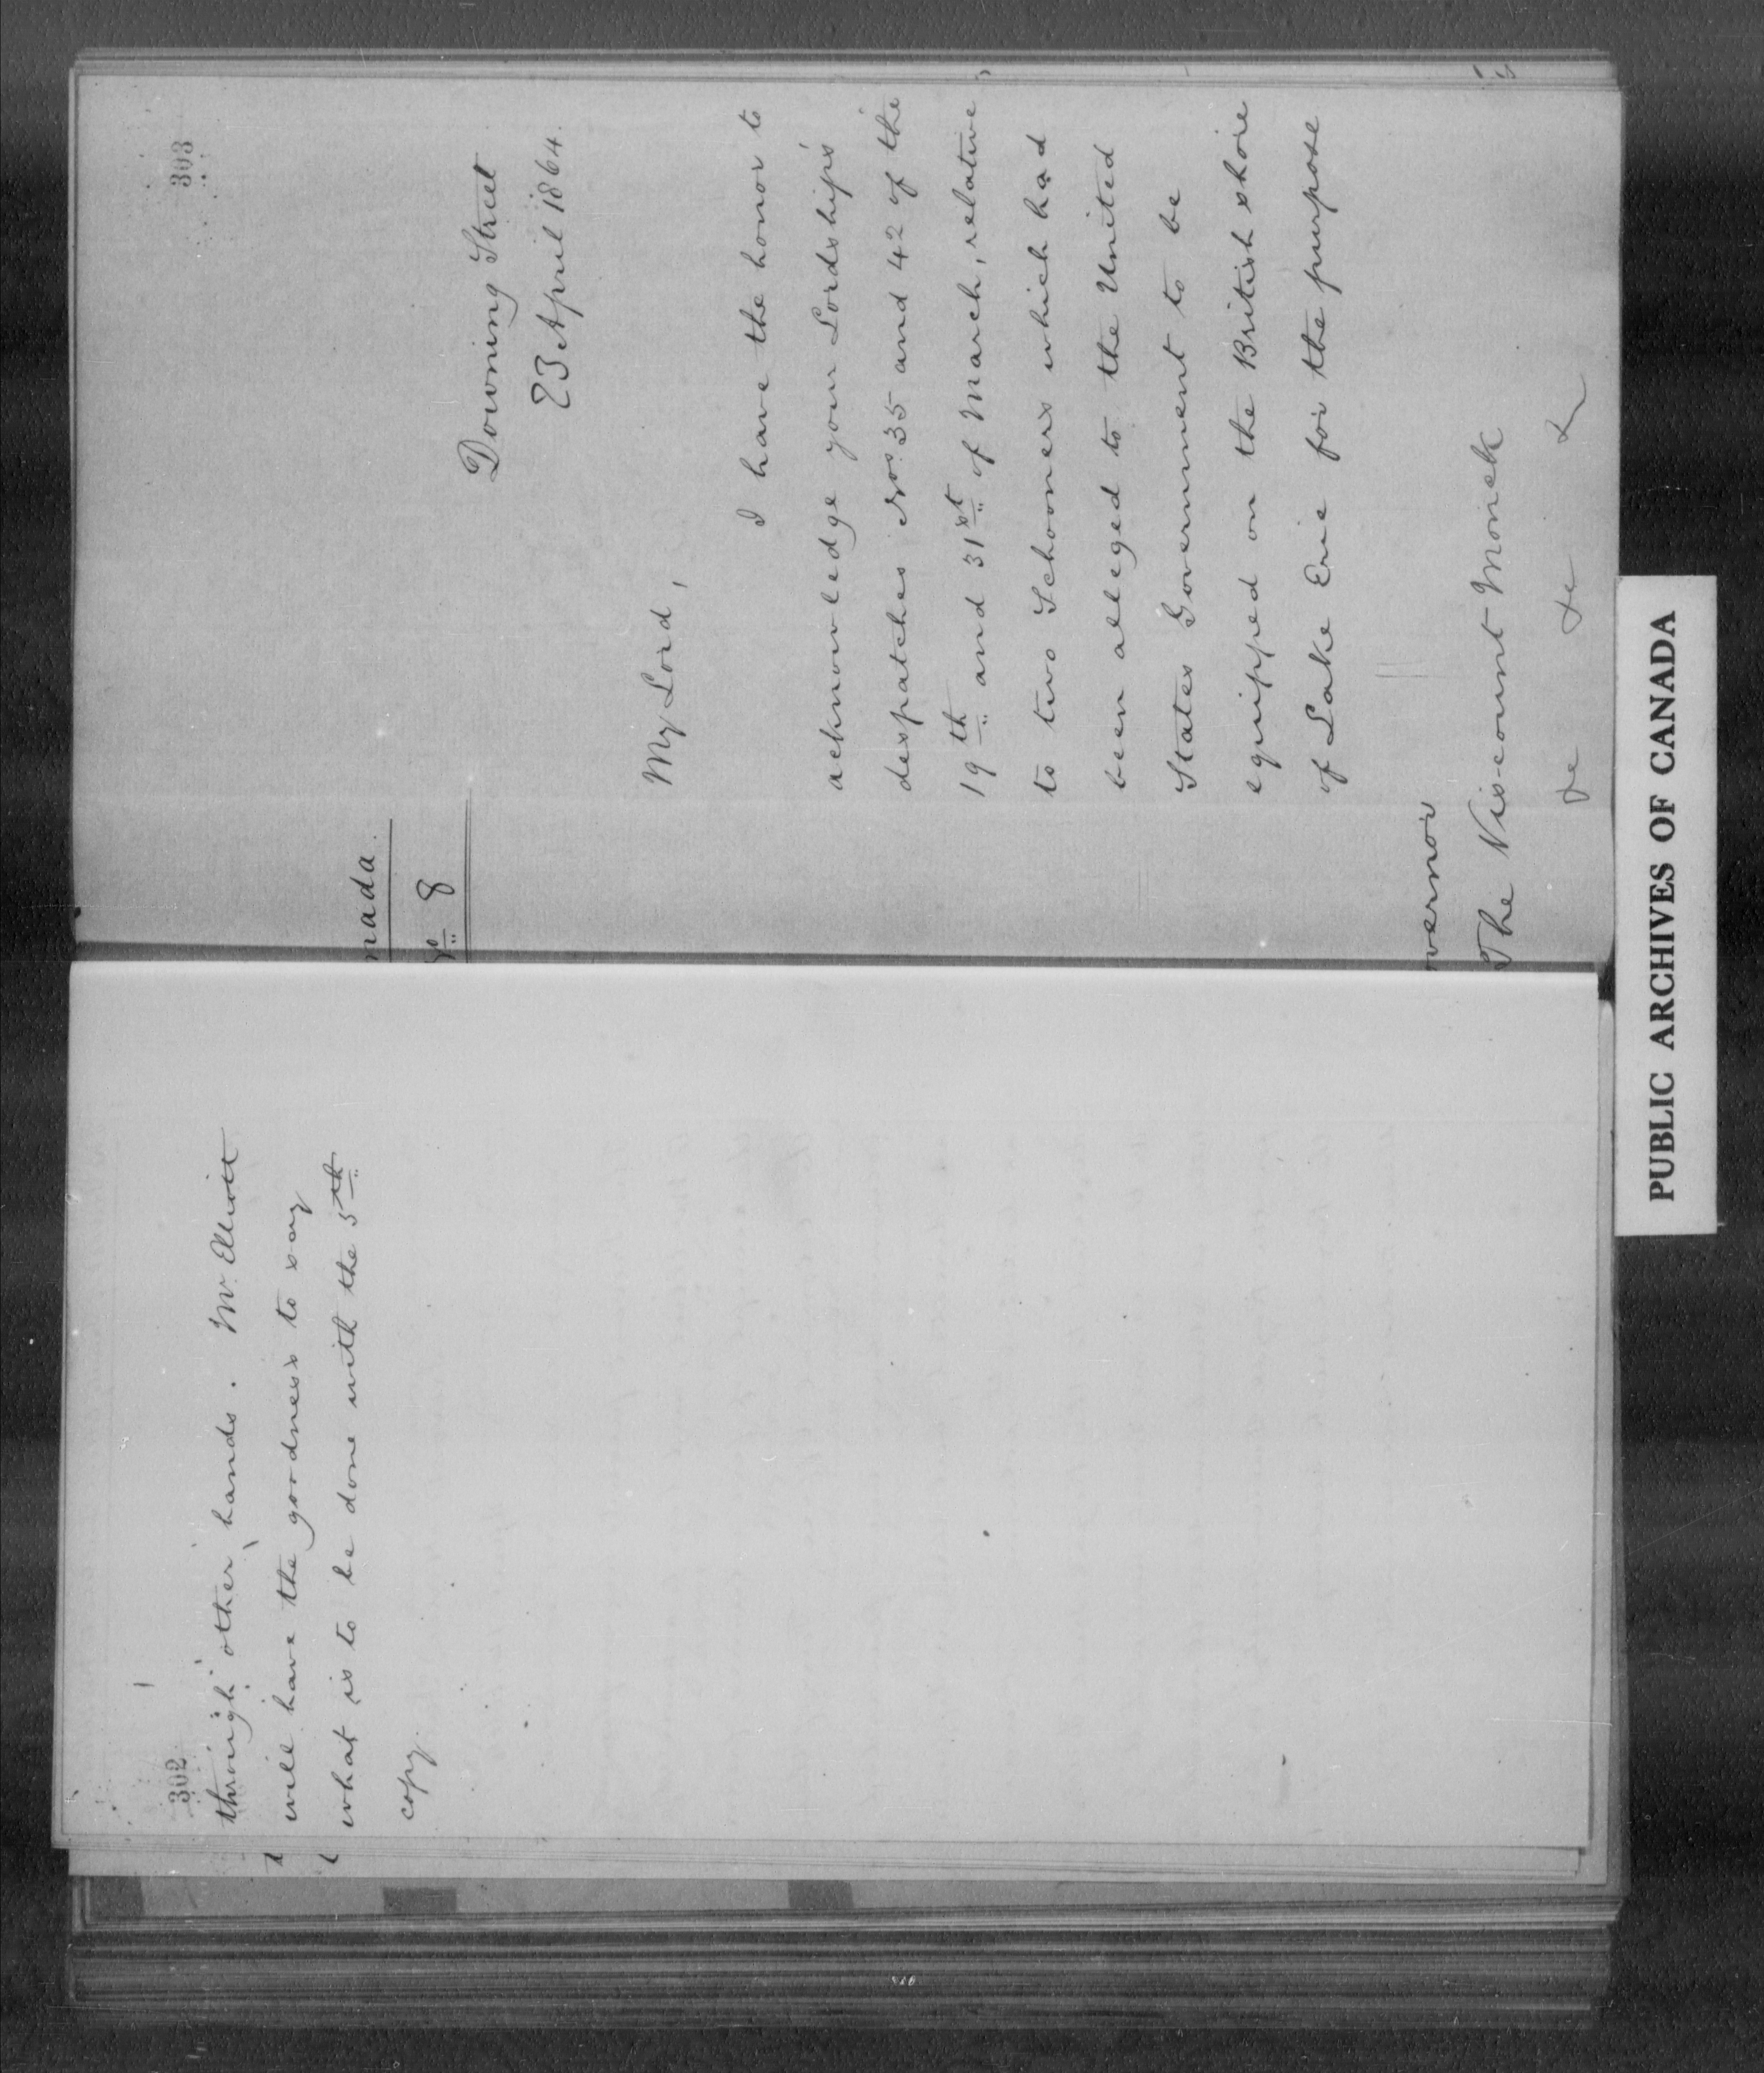 302
through other hands. Mr. Elliott
will have the goodness to say
what is to be done with the 5th
copy
303
nada.
8
Downing Street
23 April 1864.
My Lord,
I have the honor to
acknowledge your Lordship's
despatches Nos. 35 and 42 of the
19th and 31st of March, relative
to two Schooners which had
been alleged to the United
States Government to be
equipped on the British shore
of Lake Erie for the purpose
vernor
The Viscount Monck
&c &c &c
PUBLIC ARCHIVES OF CANADA